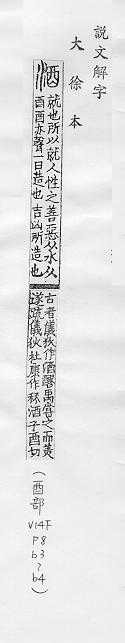 說文解字
大徐本
酒
就也所以就人性之善惡从水从
酉酉亦聲一曰造也吉凶所造也
古者儀狄作酒醪禹嘗之而美
遂疏儀狄杜康作秫酒子酉切
(酉部 V14下 P8 b3~b4)